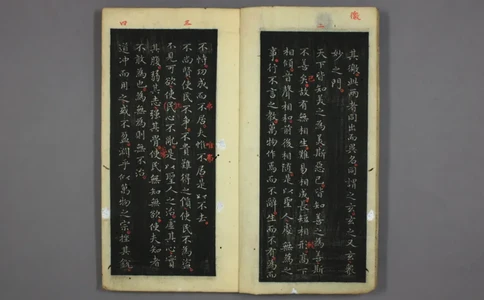 徼
其徼此兩者同出而異名同謂之玄玄之又玄衆
妙之門
二
天下皆知美之爲美斯惡已皆知善之爲善斯
不善矣故有無相生難易相成長短相形高下
相傾音聲相和前後相隨是以聖人處無爲之
事行不言之教萬物作焉而不辭生而不有爲而
不恃功成而不居夫惟不居是以不去
三
不尚賢使民不爭不貴難得之貨使民不爲盜
不見可欲使民心不亂是以聖人之治虛其心實
其腹弱其志強其骨使民無知無欲使夫知者
不敢爲也爲無爲則無不治
四
道沖而用之或不盈淵乎似萬物之宗挫其銳